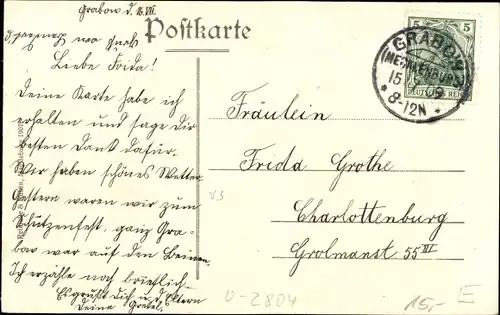 Grabow d. 8. VII.
Postkarte
Liebe Frida!
Deine Karte habe ich
erhalten und sage dir
besten Dank dafür.
Wir haben schönes Wetter
Gestern waren wir zum
Schützenfest, ganz Gra-
bow war auf den Beinen.
Ich erzähle noch brieflich.
Es grüßt Dich u. d. Eltern
Deine Gretel.
5 5
DEUTSCHES REICH
GRABOW
(MECKLENBURG)
15
* 8-12N *
Fräulein
Frida Grothe
Charlottenburg
Grolmanst. 55 III
V3
U-2804
15,- E